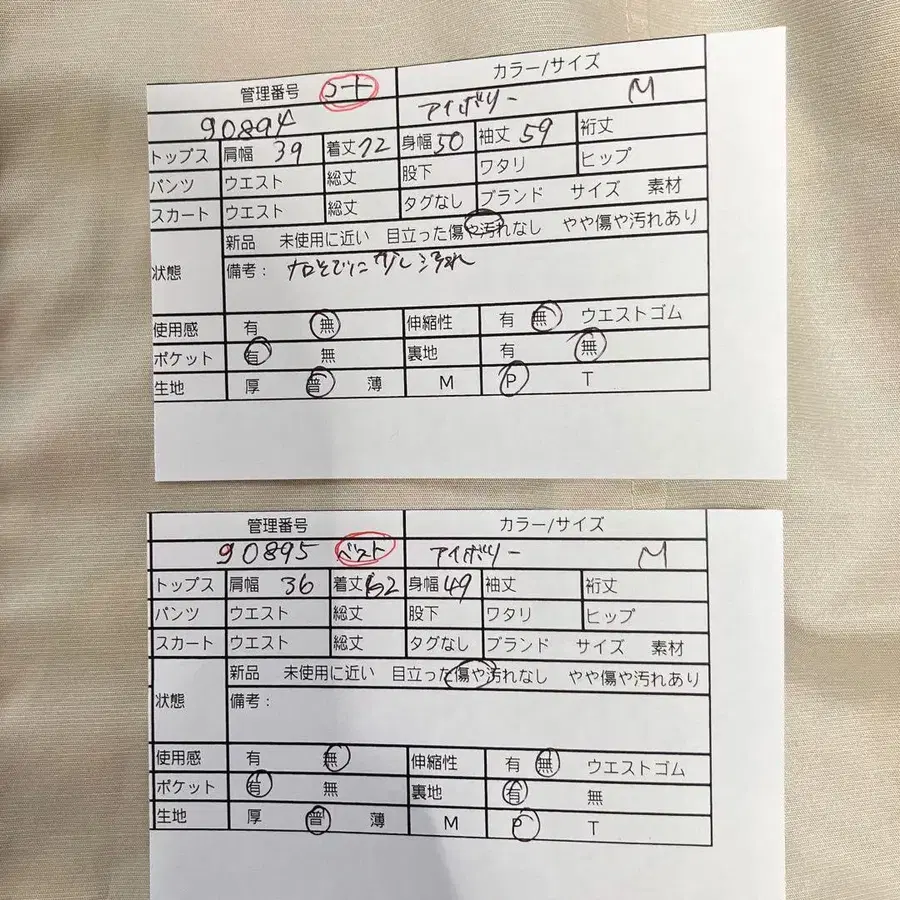 管理番号 コート カラー/サイズ
90894 アイボリー M
トップス 肩幅 39 着丈 72 身幅 50 袖丈 59 裄丈
パンツ ウエスト 総丈 股下 ワタリ ヒップ
スカート ウエスト 総丈 タグなし ブランド サイズ 素材
状態 新品 未使用に近い 目立った傷や汚れなし やや傷や汚れあり
備考: 少し汚れ
使用感 有 無 伸縮性 有 無 ウエストゴム
ポケット 有 無 裏地 有 無
生地 厚 普 薄 M P T
管理番号 カラー/サイズ
90895 ベスト アイボリー M
トップス 肩幅 36 着丈 62 身幅 49 袖丈 裄丈
パンツ ウエスト 総丈 股下 ワタリ ヒップ
スカート ウエスト 総丈 タグなし ブランド サイズ 素材
状態 新品 未使用に近い 目立った傷や汚れなし やや傷や汚れあり
備考:
使用感 有 無 伸縮性 有 無 ウエストゴム
ポケット 有 無 裏地 有 無
生地 厚 普 薄 M P T